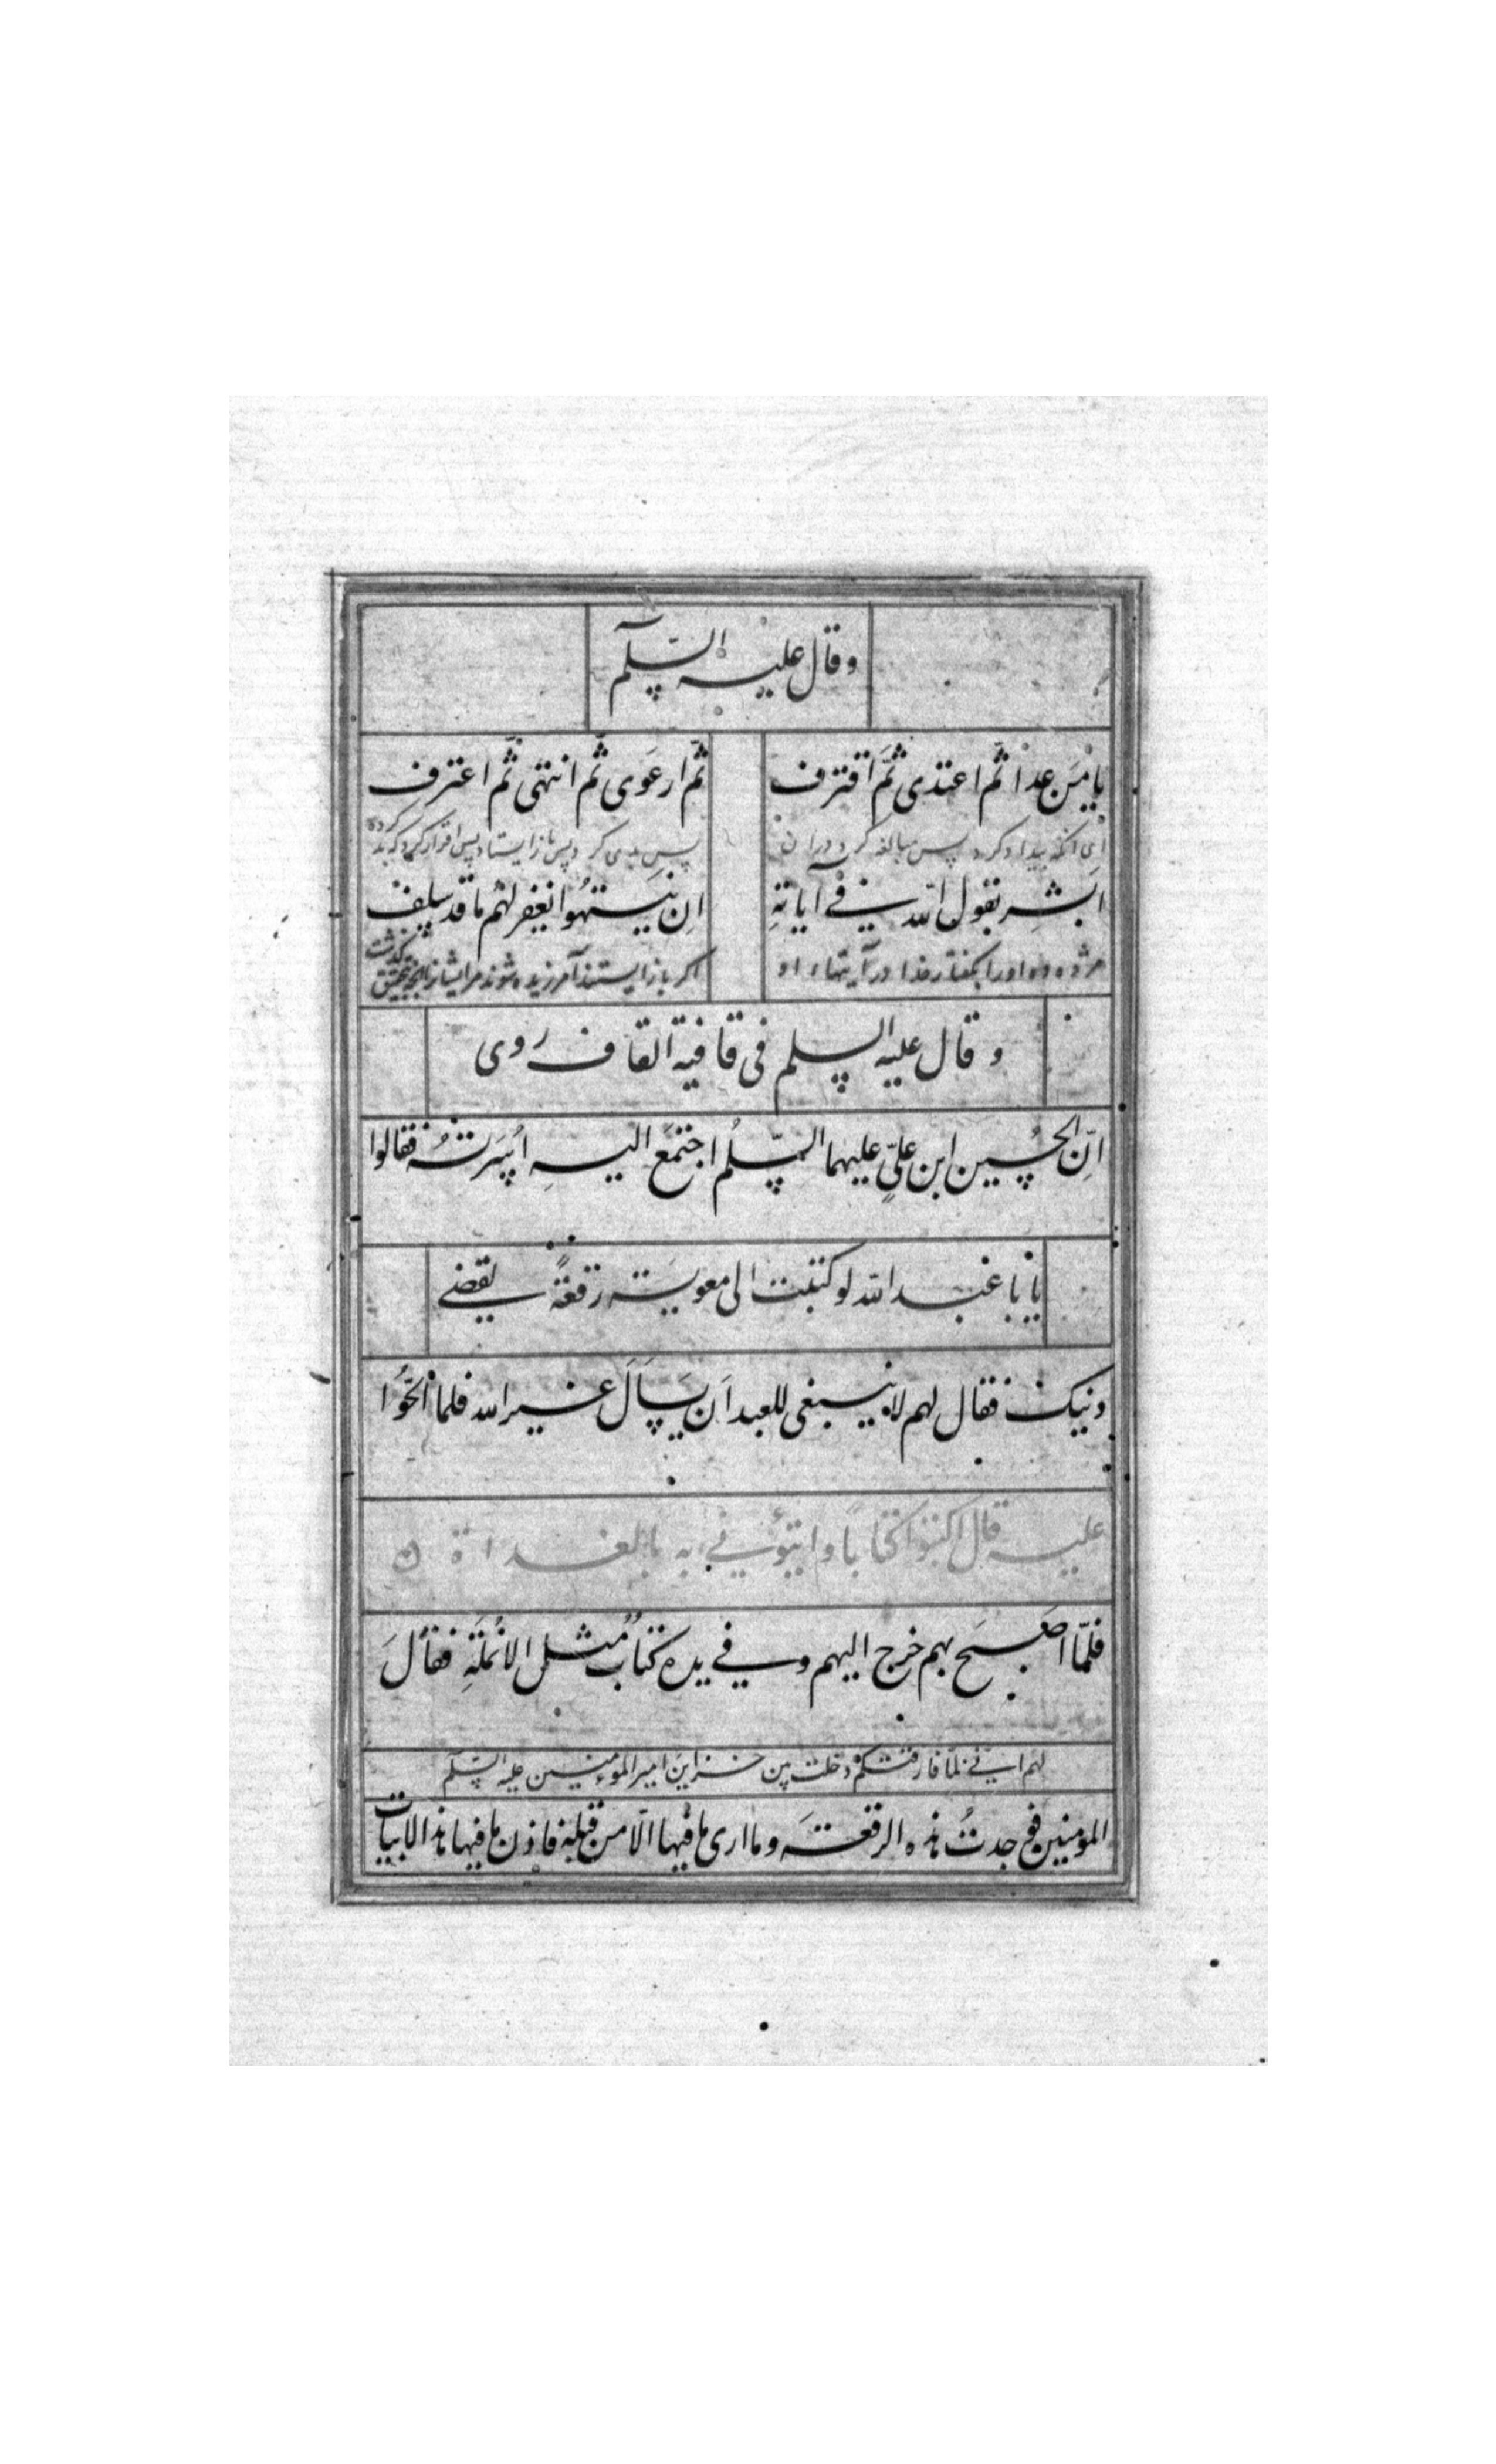 وقال عليه السلم
يا من عدا ثم اعتدى ثم اقترف
ثم ارعوى ثم انتهى ثم اعترف
ای انکه بیداد کرد پس مبالغه کرد دران
پس بدی کرد پس باز ایستاد پس اقرار کرد که بد کرده
ابشر بقول الله في آياته
ان ينتهوا نغفر لهم ما قد سلف
مژده ده او را بکفتار خدا در آیتهاء او
اکر باز ایستند آمرزیده شوند مر ایشانرا انچه بتحقیق کذشت
وقال عليه السلم فى قافية القاف روى
انّ الحُسين ابن عليٍّ عليهما السّلم اجتمَع اليهِ اُسَرتهُ فقالوا
يا با عبد الله لو كتبت الى معوية رقعةً يقضي
دينك فقال لهم لا ينبغى للعبد اَن يسأَلَ غير الله فلما الحّوُا
عليه قال اكتبوا كتاباً وايتؤني به بالغداة
فلمّا اصبح بهم خرج اليهم وفي يده كتابٌ مُثل الانمُلَةِ فقالَ
لهم اني لمّا فارقتكم دخلت بين خزاين امير المؤمنين عليه السّلم
المومنين فوجدتُ هذه الرقعةَ وما ارى ما فيها الّا من قبله فاذن ما فيها هذا الابيات